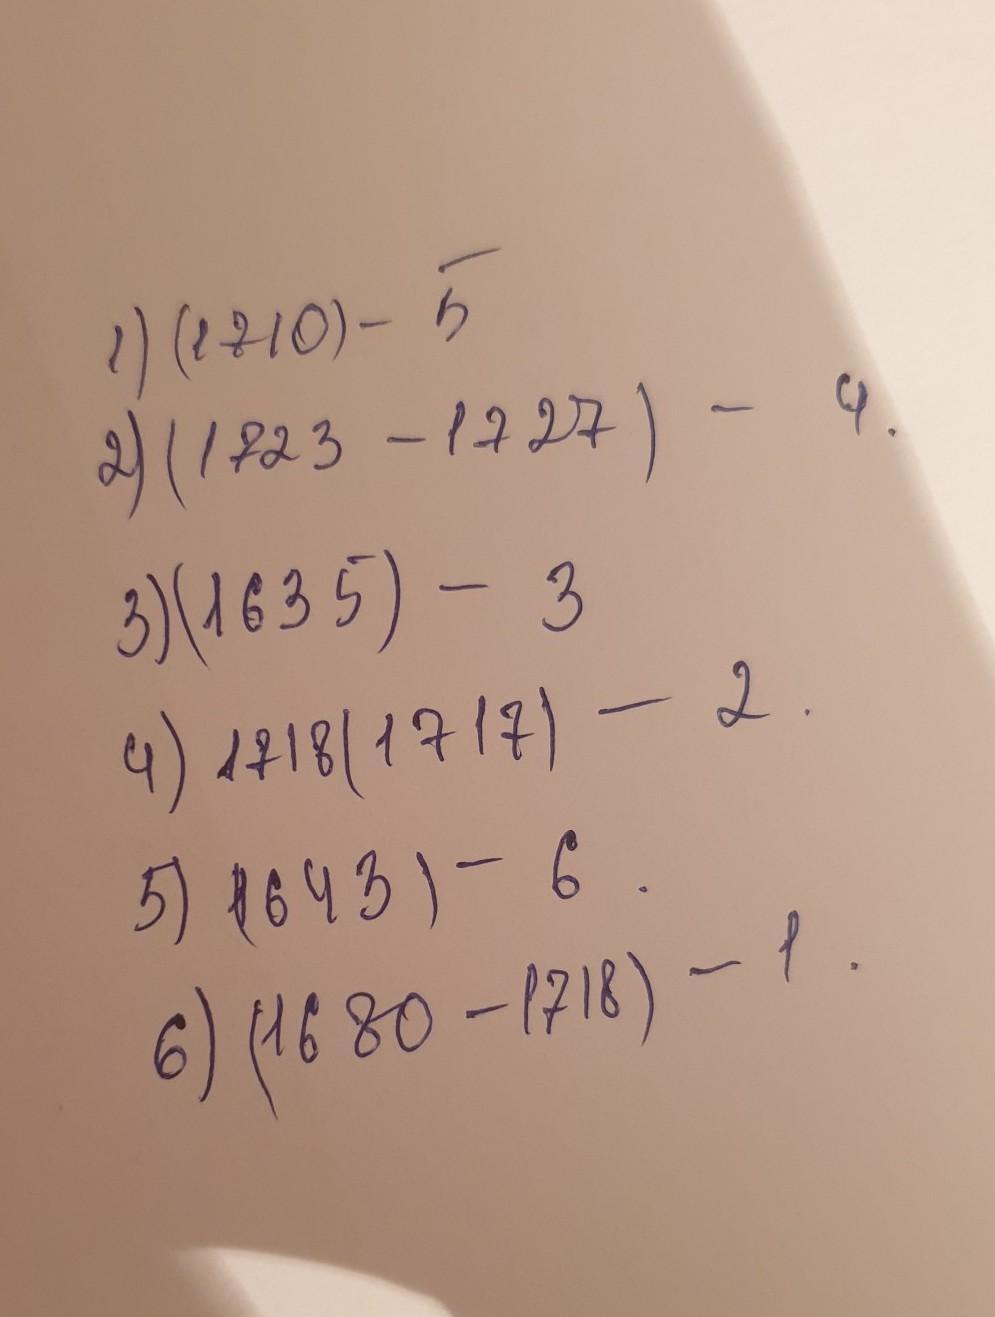 1) (1710) - 5
2) (1723 - 1727) - 4.
3) (1635) - 3
4) 1718(1717) - 2.
5) 1643) - 6.
6) (1680 - 1718) - 1.